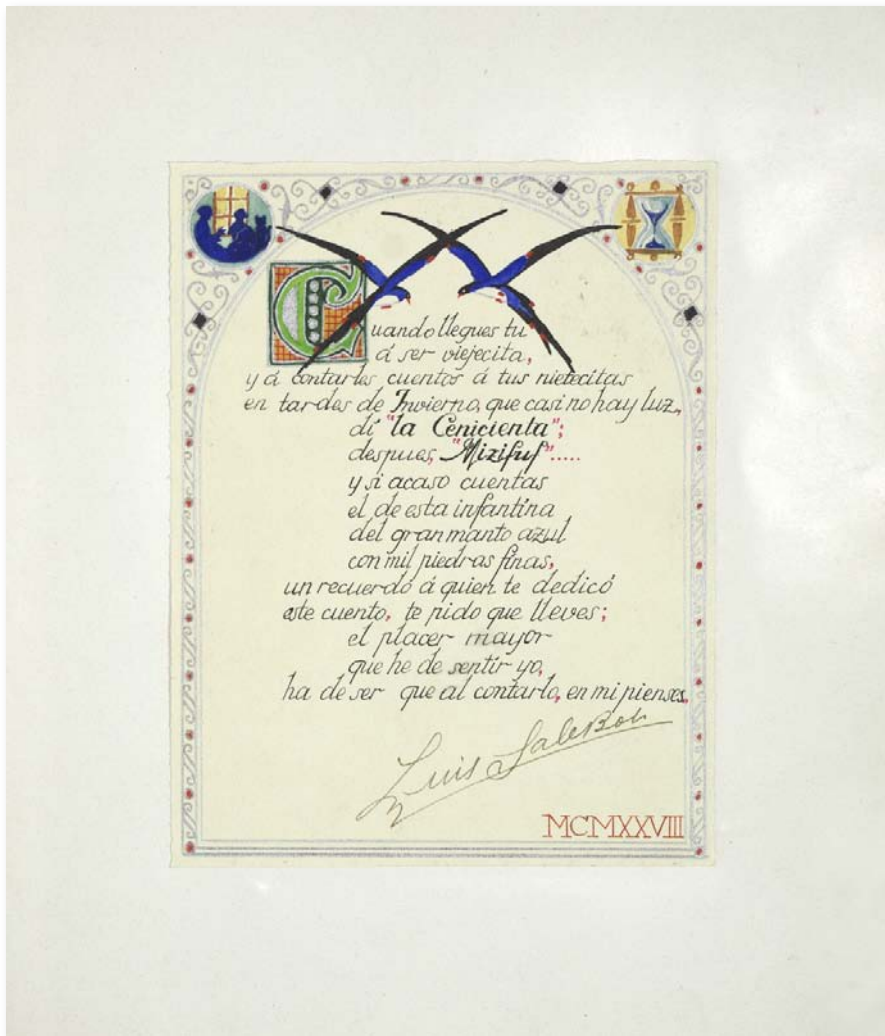 Cuando llegues tu
á ser viejecita,
y á contarles cuentos á tus nietecitas
en tardes de Invierno, que casi no hay luz,
di "la Cenicienta";
despues, "Mizifuf".....
y si acaso cuentas
el de esta infantina
del gran manto azul
con mil piedras finas,
un recuerdo á quien te dedicó
este cuento, te pido que lleves;
el placer mayor
que he de sentir yo,
ha de ser que al contarlo, en mi pienses.
Luis
MCMXXVIII